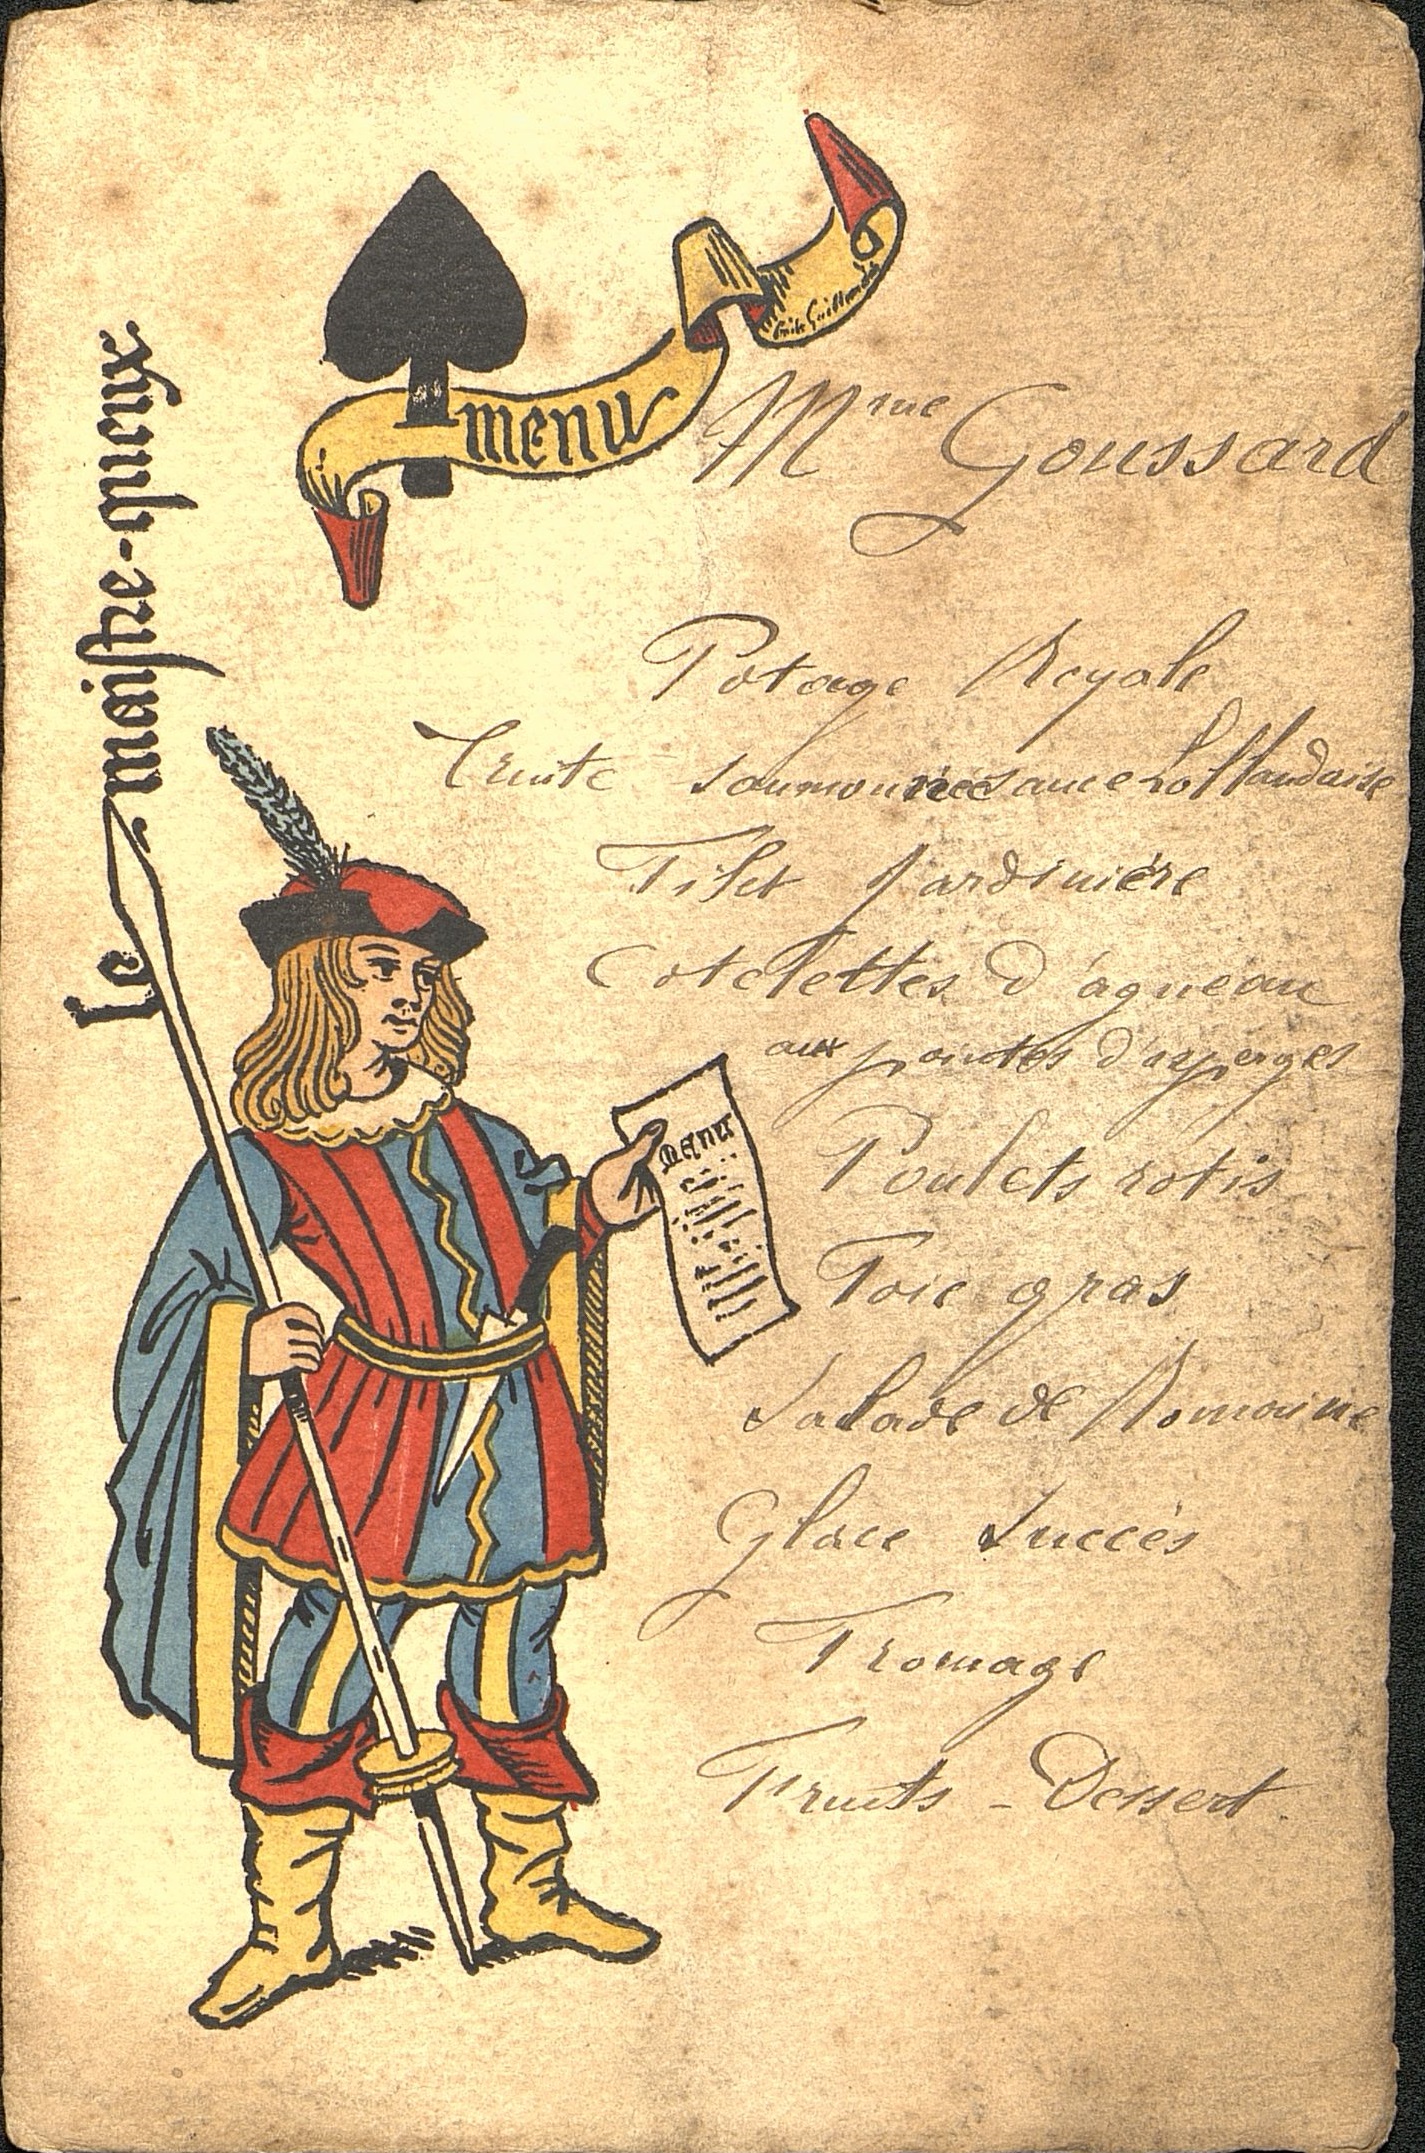 Le maistre-queux
menu
Mme Goussard
Potage Royale
Truite saumonnée sauce hollandaise
Filet Jardinière
Cotelettes d'agneau
aux pointes d'asperges
menu
Poulets rotis
Foie gras
Salade de Romaine
Glace Succès
Fromage
Fruits - Dessert